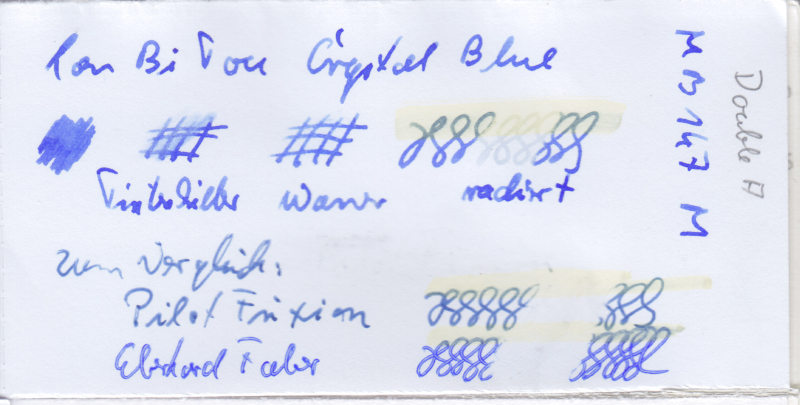 Lan Bi Tou Crystal Blue
Tintenkiller Wasser radiert
zum Vergleich:
Pilot Frixion
Eberhard Faber
MB 147 M
Double A